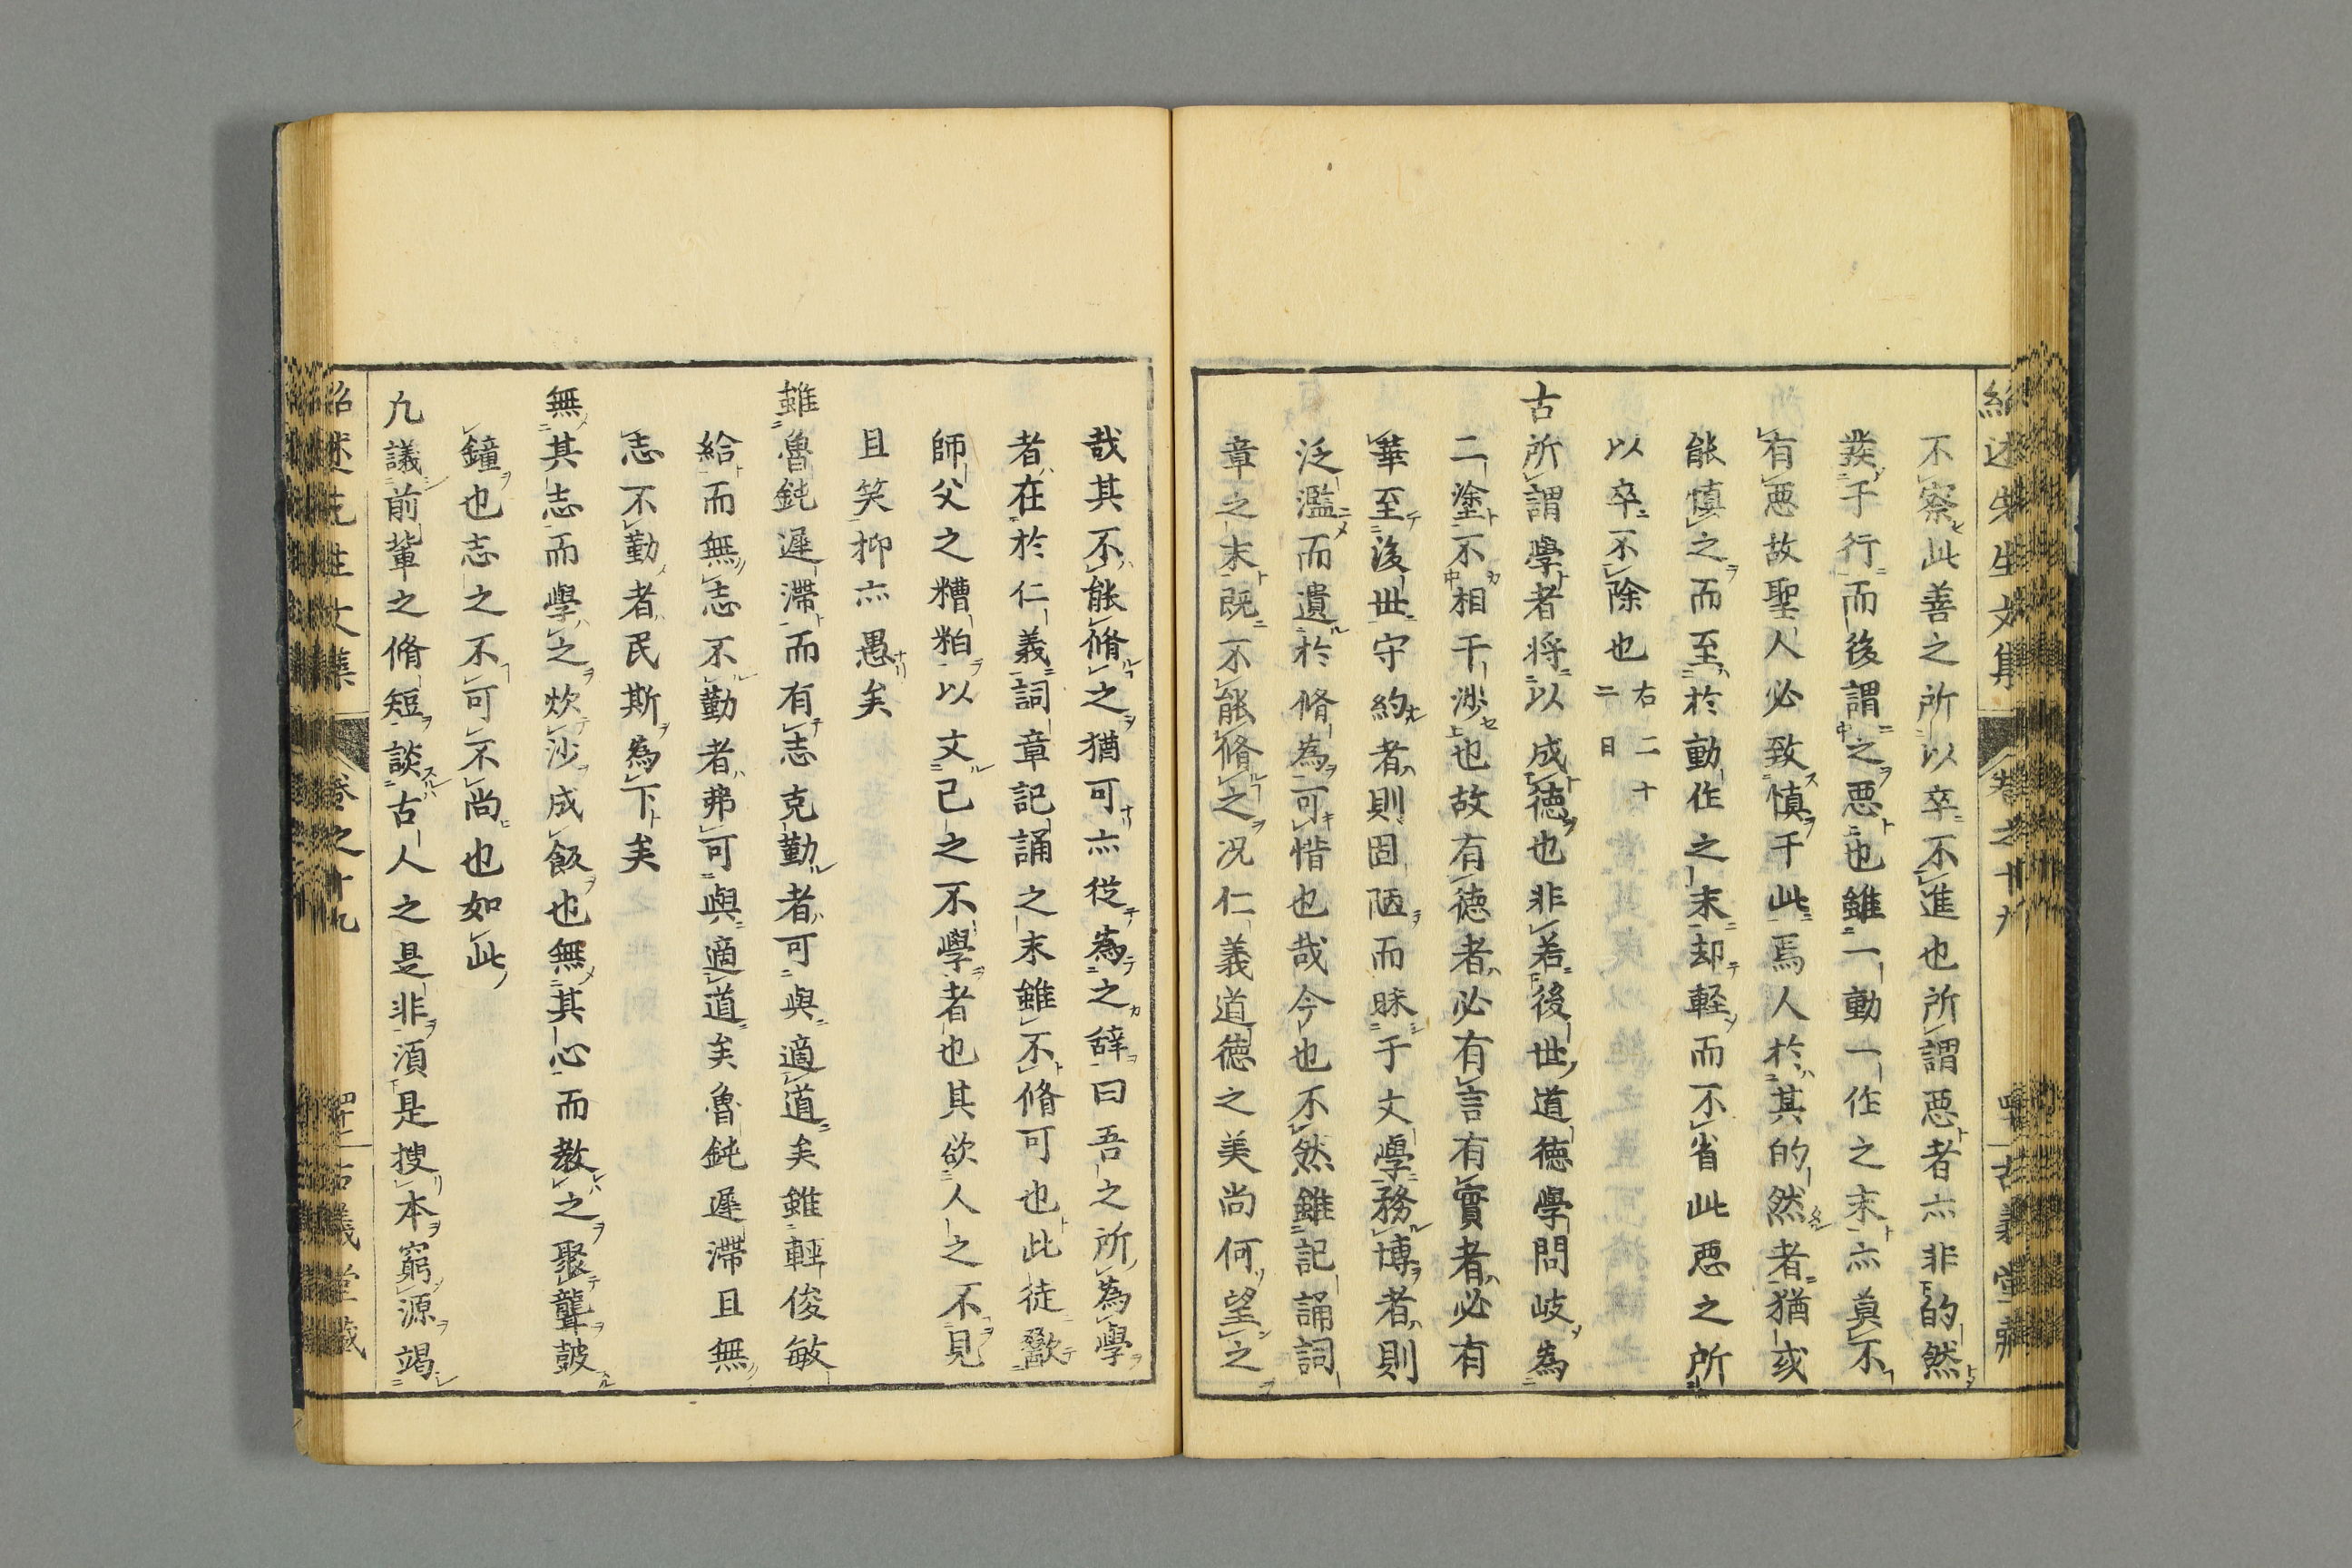 紹述先生文集 卷之十九 古義堂藏
不察此善之所以卒不進也所謂惡者亦非的然
發于行而後謂之惡也雖一動一作之末亦莫不
有惡故聖人必致慎于此焉人於其的然者猶或
能慎之而至於動作之末却輕而不省此惡之所
以卒不除也右二十二日
古所謂學者將以成德也非若後世道德學問岐為
二塗不相干涉也故有德者必有言有實者必有
華至後世守約者則固陋而昧于文學務博者則
泛濫而遺於脩為可惜也哉今也不然雖記誦詞
章之末既不能脩之况仁義道德之美尚何望之
哉其不能脩之猶可亦從為之辭曰吾之所為學
者在於仁義詞章記誦之末雖不脩可也此徒歠
師父之糟粕以文己之不學者也其欲人之不見
且笑抑亦愚矣
雖魯鈍遲滯而有志克勤者可與適道矣雖輕俊敏
給而無志不勤者弗可與適道矣魯鈍遲滯且無
志不勤者民斯為下矣
無其志而學之炊沙成飯也無其心而教之聚聾鼓
鐘也志之不可不尚也如此
凡議前輩之脩短談古人之是非須是搜本窮源竭
紹述先生文集 卷之十九 四十一 古義堂藏